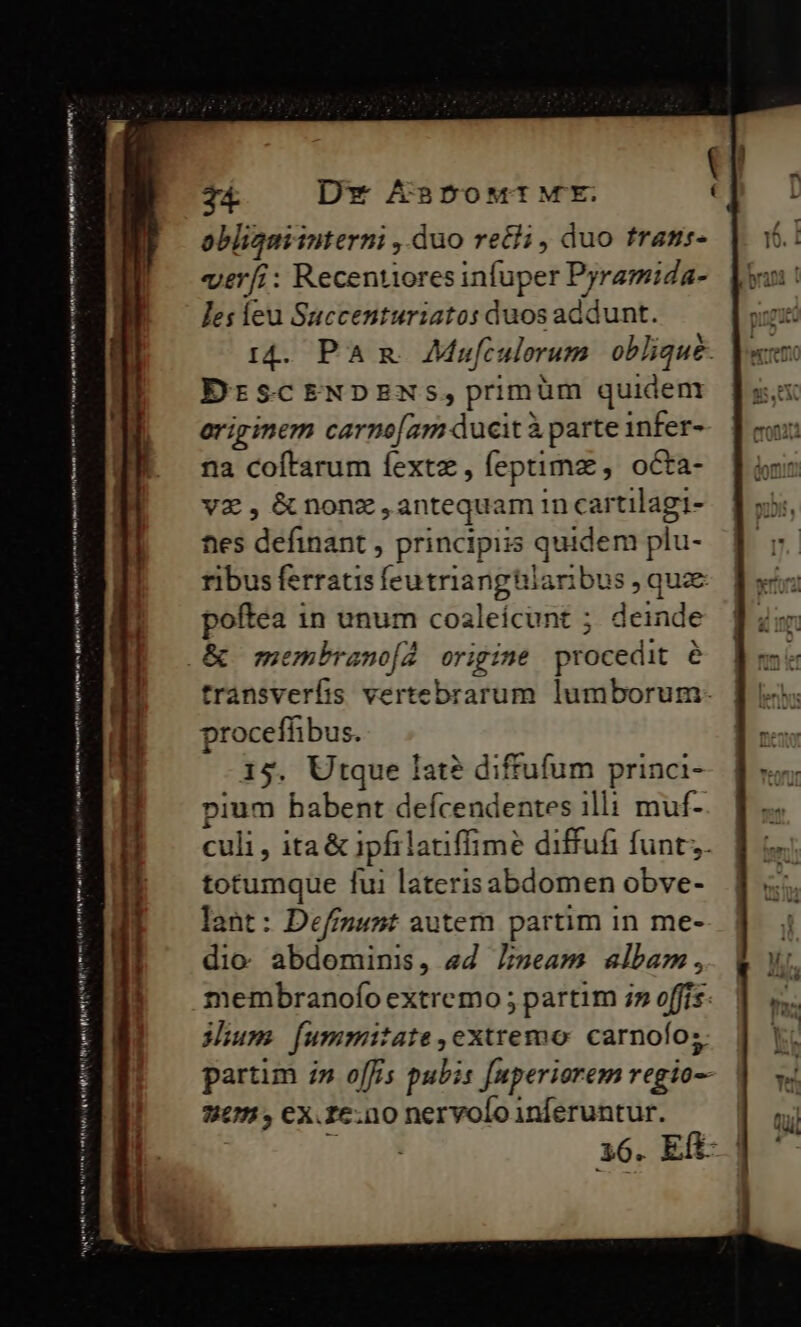 34 De Abdomine.
obliqui interni, duo recti, duo trans-
versi: Recentiores inſuper Pyramida-
les ſeu Succenturiatos duos addunt.
14. Par Muſculorum obliquè
Descendens, primùm quidem
originem carnoſam ducit à parte infer-
na coſtarum ſextæ, ſeptimæ, octa-
væ, & nonæ, antequam in cartilagi-
nes deſinant, principiis quidem plu-
ribus ferratis ſeu triangularibus, quæ
poſtea in unum coaleſcunt; deinde
& membranoſâ origine procedit è
transverſis vertebrarum lumborum
proceſſibus.
15. Utque latè diffuſum princi-
pium habent deſcendentes illi muſ-
culi, ita & ipſi latiſſimè diffuſi ſunt;
totumque ſui lateris abdomen obve-
lant: Deſinunt autem partim in me-
dio abdominis, ad lineam albam,
membranoſo extremo; partim in oſſis
ilium ſummitate, extremo carnoſo;
partim in oſſis pubis ſuperiorem regio-
nem, extremo nervoſo inſeruntur.
16. Eſt